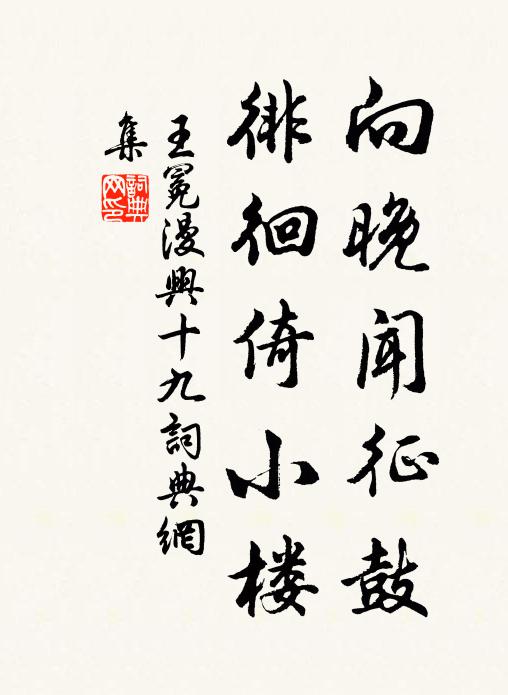 向晚闻征鼓
徘徊倚小楼
王冕漫興十九詞典網
集
詞典
网印